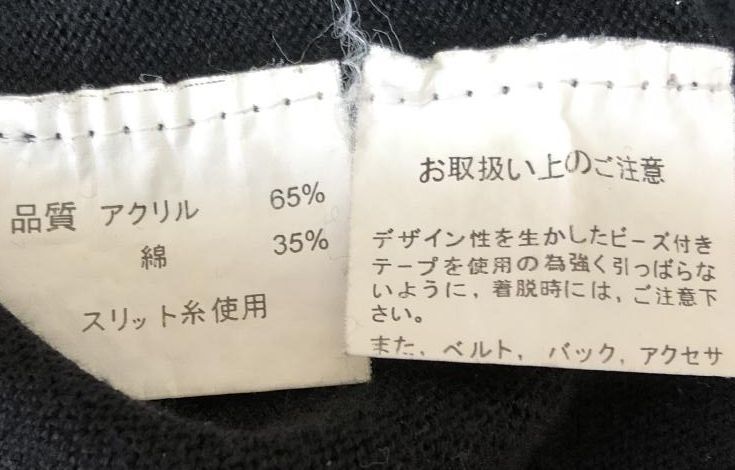 品質 アクリル 65%
綿 35%
スリット糸使用
お取扱い上のご注意
デザイン性を生かしたビーズ付き
テープを使用の為強く引っぱらな
いように，着脱時には，ご注意下
さい。
また，ベルト，バック，アクセサ